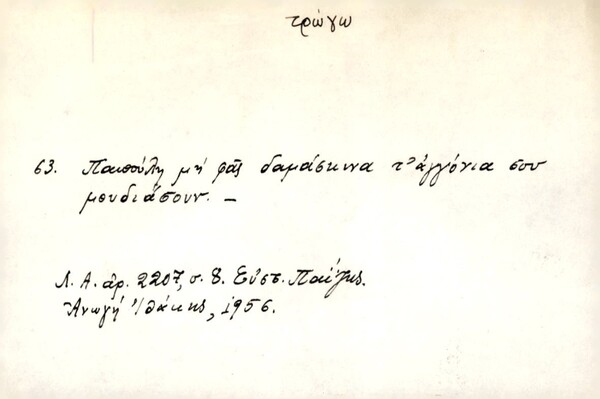 τρώγω
63. Παππούλη μή φᾶς δαμάσκηνα τ' ἀγγόνια σου
μουδιάσουν. –
Λ. Α. ἀρ. 2207, σ. 8. Εὐστ. Παΐζης.
Ἀνωγή Ἰθάκης, 1956.